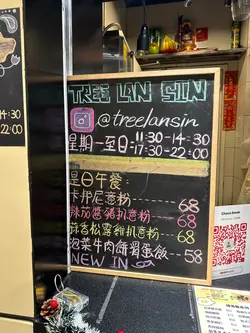 TREE LAN SIN
@treelansin
星期一至日 11:30-14:30
17:30-22:00
是日午餐:
卡邦尼意粉----68
辣茄醬豬扒意粉--68
蒜香松露雞扒意粉--68
泡菜牛肉餅滑蛋飯--58
NEW IN
14:30
22:00